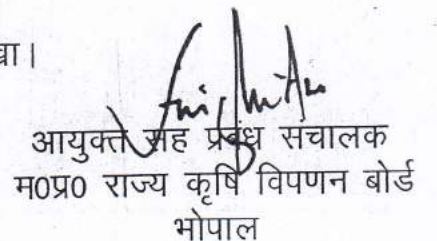 वा।
आयुक्त सह प्रबंध संचालक
म0प्र0 राज्य कृषि विपणन बोर्ड
भोपाल